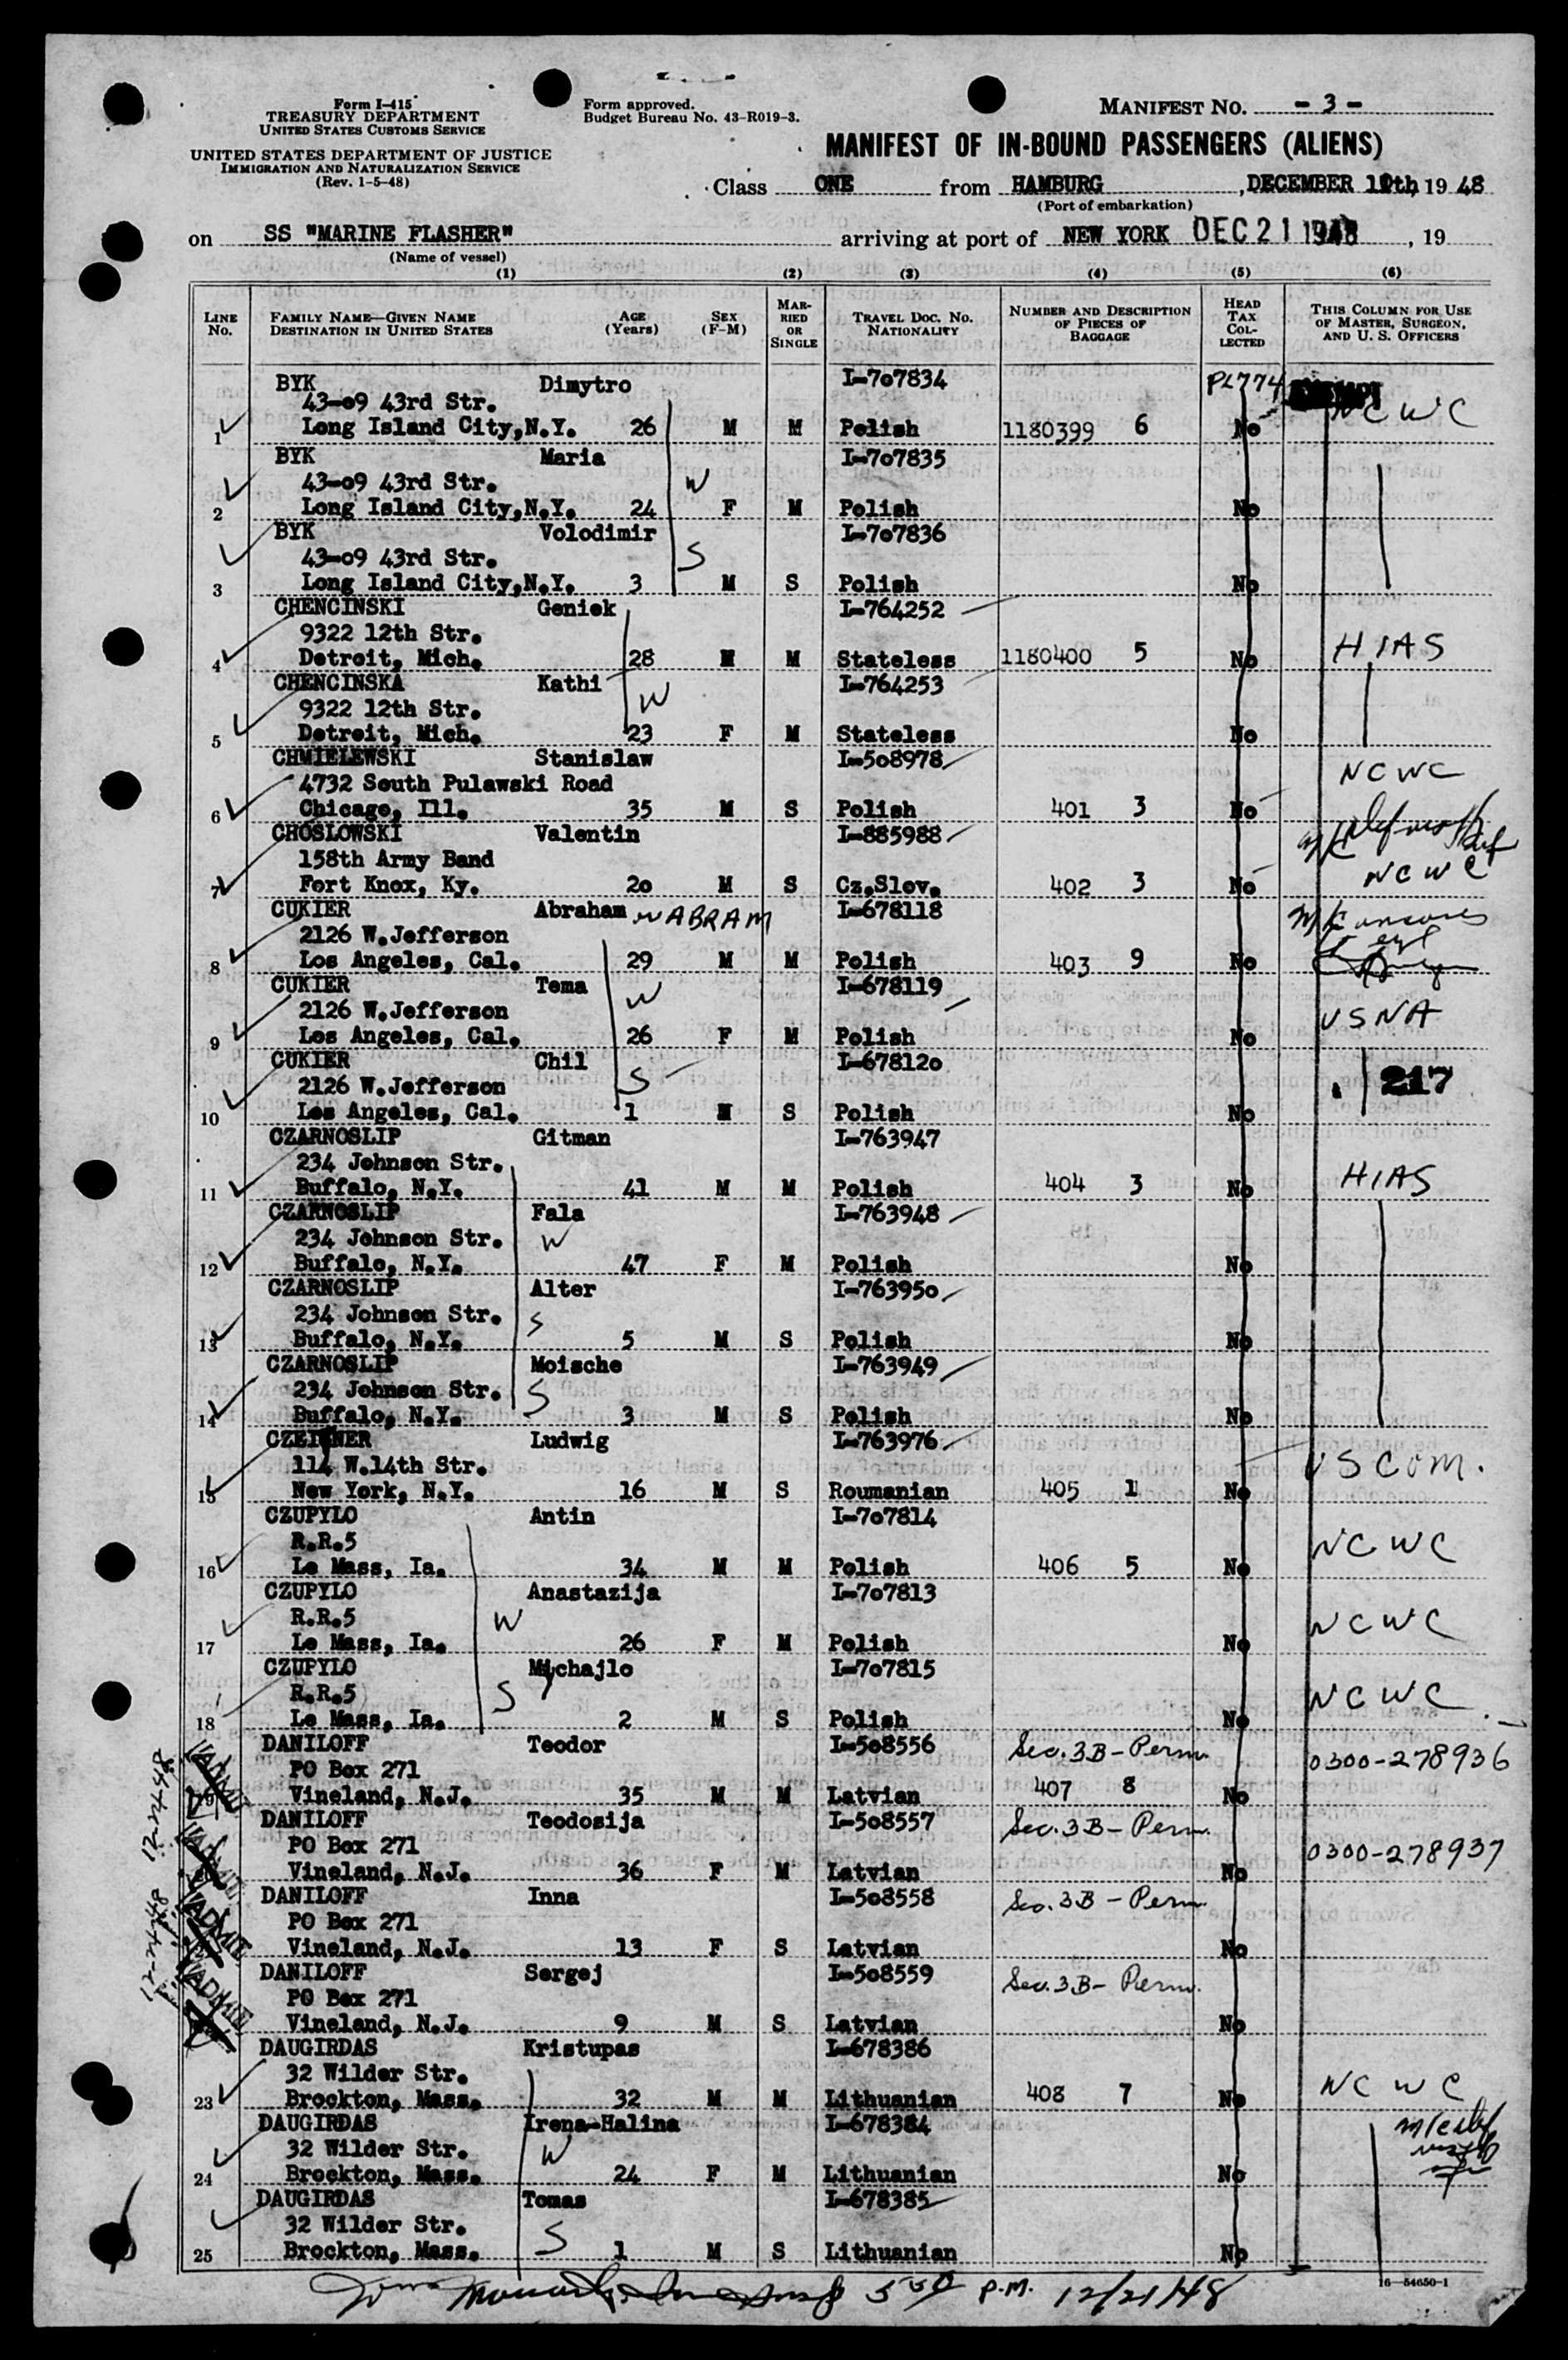 Form I-415
TREASURY DEPARTMENT
UNITED STATES CUSTOMS SERVICE
UNITED STATES DEPARTMENT OF JUSTICE
IMMIGRATION AND NATURALIZATION SERVICE
(Rev. 1-5-48)
Form approved.
Budget Bureau No. 43-R019-3.
MANIFEST NO. - 3 -
MANIFEST OF IN-BOUND PASSENGERS (ALIENS)
Class ONE from HAMBURG, DECEMBER 19 48
(Port of embarkation)
on SS "MARINE FLASHER" arriving at port of NEW YORK DEC 21 1948, 19
(Name of vessel)
(1) (2) (3) (4) (5) (6)
LINE No. FAMILY NAME—GIVEN NAME DESTINATION IN UNITED STATES AGE (Years) SEX (F-M) MARRIED OR SINGLE TRAVEL DOC. NO. NATIONALITY NUMBER AND DESCRIPTION OF PIECES OF BAGGAGE HEAD TAX COLLECTED THIS COLUMN FOR USE OF MASTER, SURGEON, AND U. S. OFFICERS
BYK Dimytro I-707834 PL774
43-09 43rd Str. NCWC
1 Long Island City,N.Y. 26 M M Polish 1180399 6 No
BYK Maria I-707835
43-09 43rd Str. W
2 Long Island City,N.Y. 24 F M Polish No
BYK Volodimir I-707836
43-09 43rd Str. S
3 Long Island City,N.Y. 3 M S Polish No
CHENCINSKI Geniek I-764252
9322 12th Str.
4 Detroit, Mich. 28 M M Stateless 1180400 5 No HIAS
CHENCINSKA Kathi I-764253
9322 12th Str. W
5 Detroit, Mich. 23 F M Stateless No
CHMIELEWSKI Stanislaw I-508978
4732 South Pulawski Road NCWC
6 Chicago, Ill. 35 M S Polish 401 3 No
CHOSLOWSKI Valentin I-885988
158th Army Band
7 Fort Knox, Ky. 20 M S Cz.Slov. 402 3 No NCWC
CUKIER Abraham ABRAM I-678118
2126 W.Jefferson
8 Los Angeles, Cal. 29 M M Polish 403 9 No
CUKIER Tema I-678119
2126 W.Jefferson W USNA
9 Los Angeles, Cal. 26 F M Polish No
CUKIER Chil I-678120
2126 W.Jefferson S 217
10 Los Angeles, Cal. 1 M S Polish No
CZARNOSLIP Gitman I-763947
234 Johnson Str.
11 Buffalo, N.Y. 41 M M Polish 404 3 No HIAS
CZARNOSLIP Fala I-763948
234 Johnson Str. W
12 Buffalo, N.Y. 47 F M Polish No
CZARNOSLIP Alter I-763950
234 Johnson Str. S
13 Buffalo, N.Y. 5 M S Polish No
CZARNOSLIP Moische I-763949
234 Johnson Str. S
14 Buffalo, N.Y. 3 M S Polish No
Ludwig I-763976
114 W.14th Str. USCOM.
15 New York, N.Y. 16 M S Roumanian 405 1 No
CZUPYLO Antin I-707814
R.R.5 NCWC
16 Le Mass, Ia. 34 M M Polish 406 5 No
CZUPYLO Anastazija I-707813
R.R.5 W NCWC
17 Le Mass, Ia. 26 F M Polish No
CZUPYLO Mychajlo I-707815
R.R.5 S NCWC
18 Le Mass, Ia. 2 M S Polish No
DANILOFF Teodor I-508556 Sec. 3B - Perm.
PO Box 271 0300-278936
19 Vineland, N.J. 35 M M Latvian 407 8 No
DANILOFF Teodosija I-508557 Sec. 3B - Perm.
PO Box 271 0300-278937
Vineland, N.J. 36 F M Latvian No
DANILOFF Inna I-508558 Sec. 3B - Perm.
PO Box 271
Vineland, N.J. 13 F S Latvian No
DANILOFF Sergej I-508559 Sec. 3B - Perm.
PO Box 271
Vineland, N.J. 9 M S Latvian No
DAUGIRDAS Kristupas I-678386
32 Wilder Str.
23 Brockton, Mass. 32 M M Lithuanian 408 7 No NCWC
DAUGIRDAS Irena-Halina I-678384
32 Wilder Str. W
24 Brockton, Mass. 24 F M Lithuanian No
DAUGIRDAS Tomas I-678385
32 Wilder Str. S
25 Brockton, Mass. 1 M S Lithuanian No
P.M. 12/21/48
16—54650-1